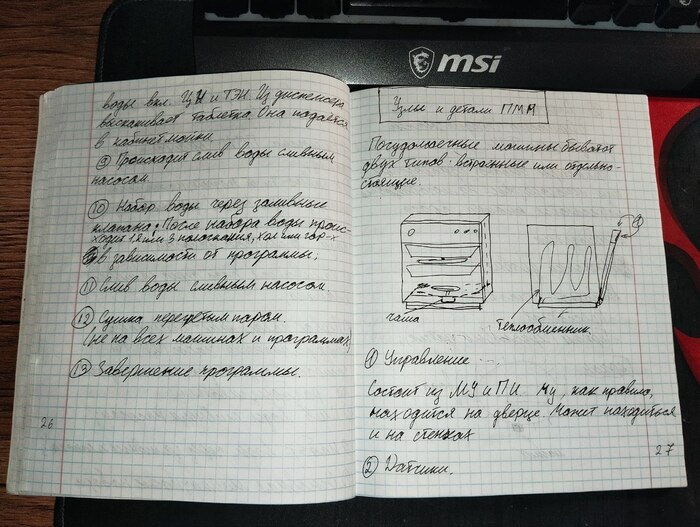 msi
воды вкл. ЦН и ТЭН. Из диспенсера
выскакивает таблетка. Она подаётся
в кабинет мойки.
⑨ Происходит слив воды сливным
насосом
⑩ Набор воды через заливные
клапана. После набора воды проис-
ходит 2 или 3 полоскания, хол или гор-х
в зависимости от программы.
⑪ Слив воды сливным насосом
⑫ Сушка перегретым паром.
(не на всех машинах и программах)
⑬ Завершение программы.
26
Узлы и детали ПММ
Посудомоечные машины бывают
двух типов: встроенные или отдельно-
стоящие.
чаша
теплообменник
① Управление
Состоит из МУ и ПИ. Му, как правило,
находится на дверце. Может находиться
и на стенках
② Датчики.
27